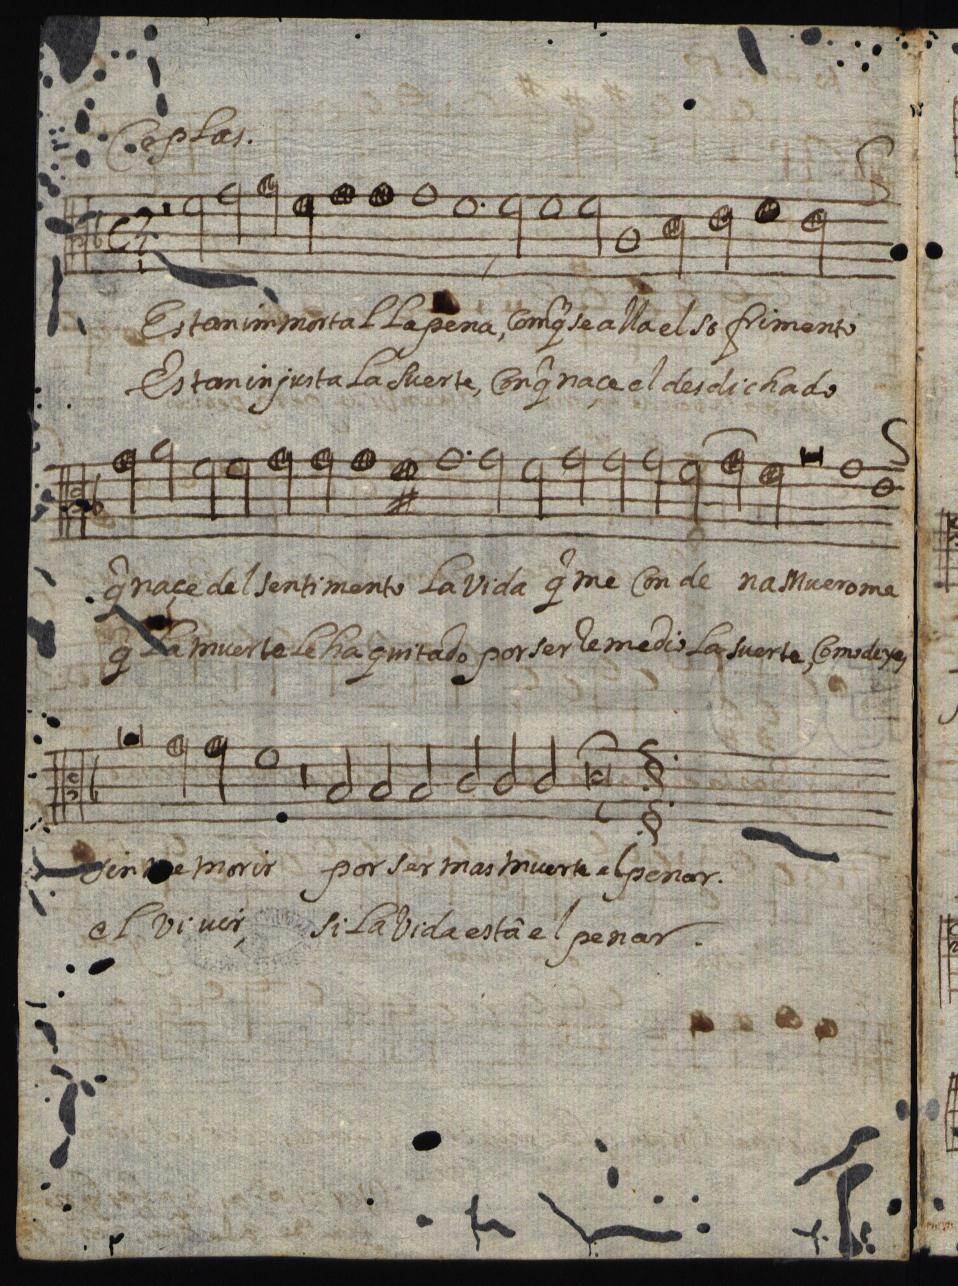 Coplas.
Es tan immortal La pena, Conq̃ se alla el sofrimento
Es tan injusta La Suerte, Conq̃ nace el desdichado
q̃ naçe del sentimento La Vida q̃ me Conde na Muerome
q̃ La muerte Le ha quitado por ser remedio La suerte, Como deye,
sin me morir por ser mas muerte el penar.
el Vi uir, si La Vida estâ el penar.